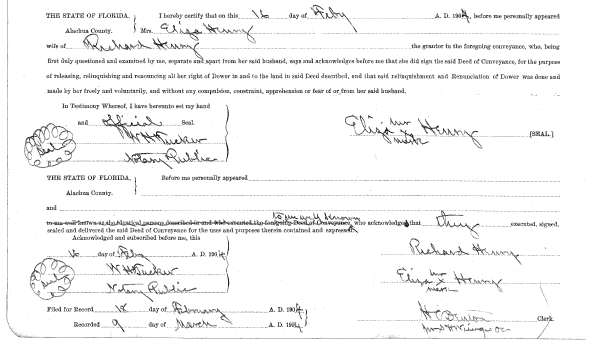 THE STATE OF FLORIDA. I hereby certify that on this 16 day of Feby A. D. 1904, before me personally appeared
Alachua County. Mrs. Eliza Henry
wife of Richard Henry the grantor in the foregoing conveyance, who, being
first duly questioned and examined by me, separate and apart from her said husband, says and acknowledges before me that she did sign the said Deed of Conveyance, for the purpose
of releasing, relinquishing and renouncing all her right of Dower in and to the land in said Deed described, and that said relinquishment and Renunciation of Dower was done and
made by her freely and voluntarily, and without any compulsion, constraint, apprehension or fear of or from her said husband.
In Testimony Whereof, I have hereunto set my hand
and official Seal.
Seal
W H Tucker
Notary Public
her
Eliza x Henry [SEAL.]
mark
THE STATE OF FLORIDA. Before me personally appeared
Alachua County.
and
to me well known
to me well known as the identical persons described in and who executed the foregoing Deed of Conveyance, who acknowledged that they executed, signed,
sealed and delivered the said Deed of Conveyance for the uses and purposes therein contained and expressed,
Acknowledged and subscribed before me, this
16 day of Feby A. D. 1904
Seal
W H Tucker
Notary Public
Richard Henry
her
Eliza x Henry
mark
Filed for Record 18 day of February A. D. 1904
Recorded 9 day of March A. D. 1904
Clerk.